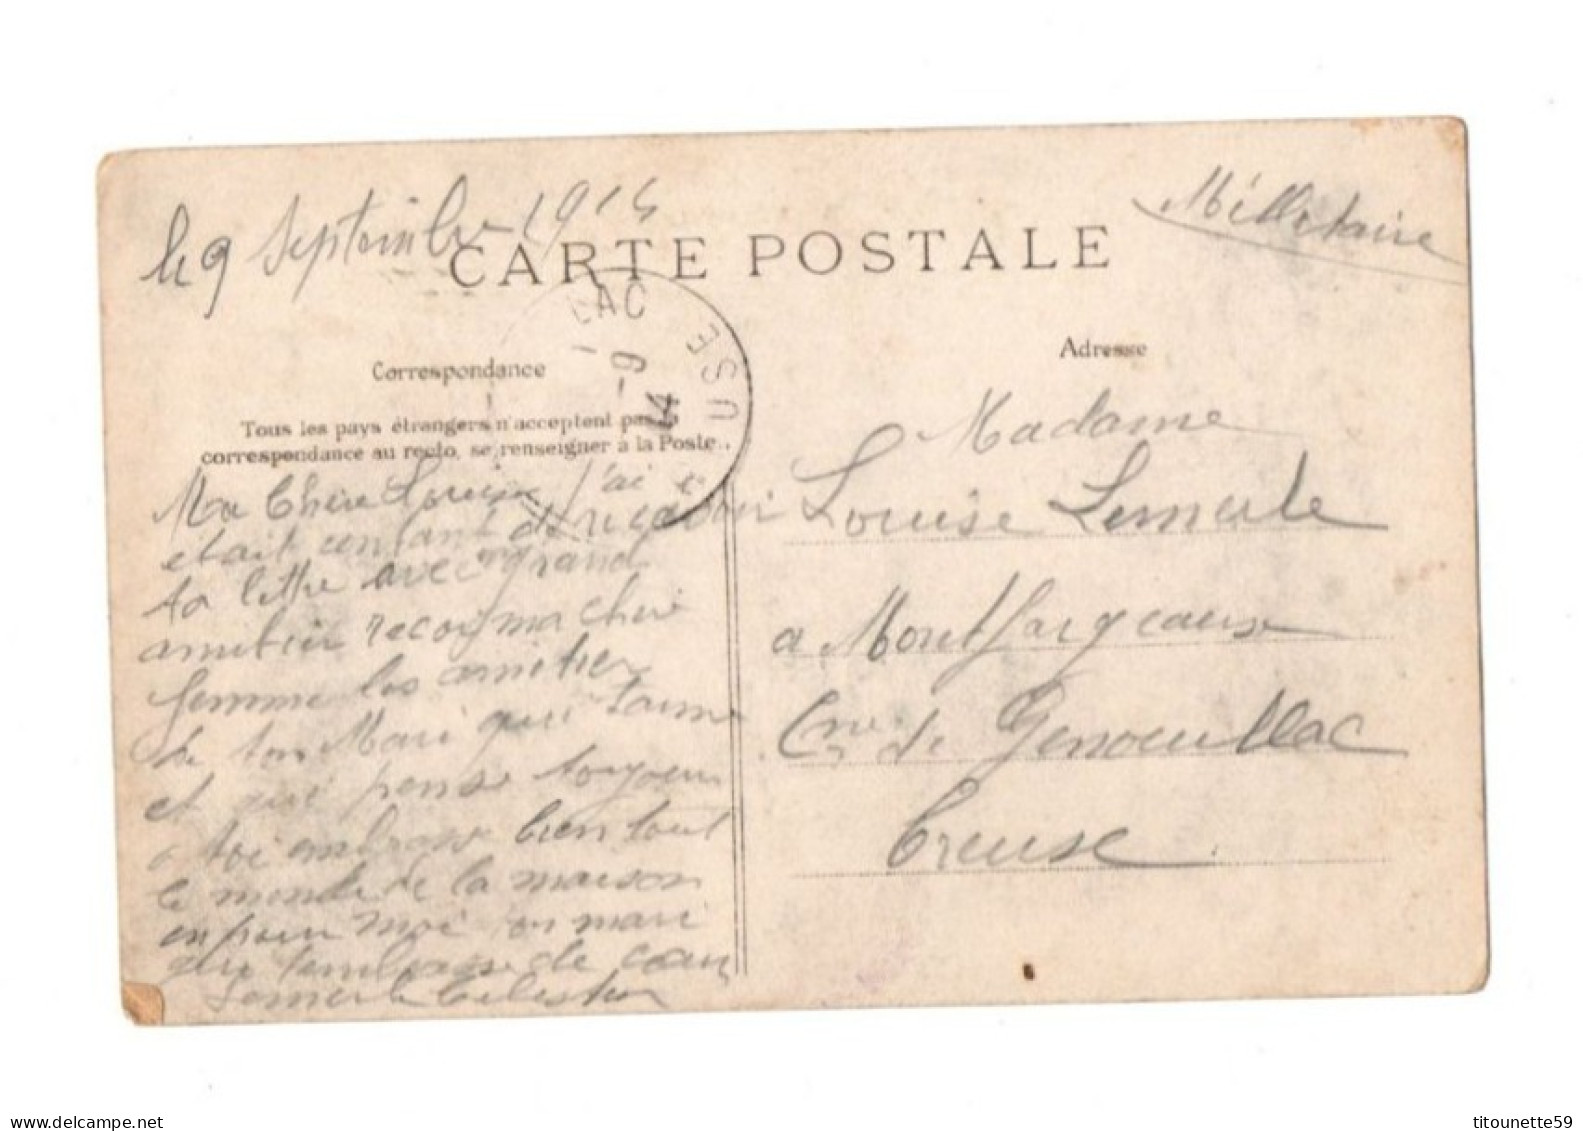 le 9 Septembre 1914
Millitaire
CARTE POSTALE
LAC
USE
-9
14
Correspondance
Adresse
Tous les pays étrangers n'acceptent pas la
correspondance au recto, se renseigner à la Poste.
Ma Chere Louise j'ai
etait contant de recevoir
ta lettre avec grand
amitier recoy ma chere
femme les amitier
de ton Mari qui taime
et qui pense toujour
a toi embrase bien tout
le monde de la maison
en pour moi ton mari
qui tembrase de coeur
Lemerle Celestin
Madame
Louise Lemerle
a Montfargeaux
Cne de Genouillac
Creuse
titounette59